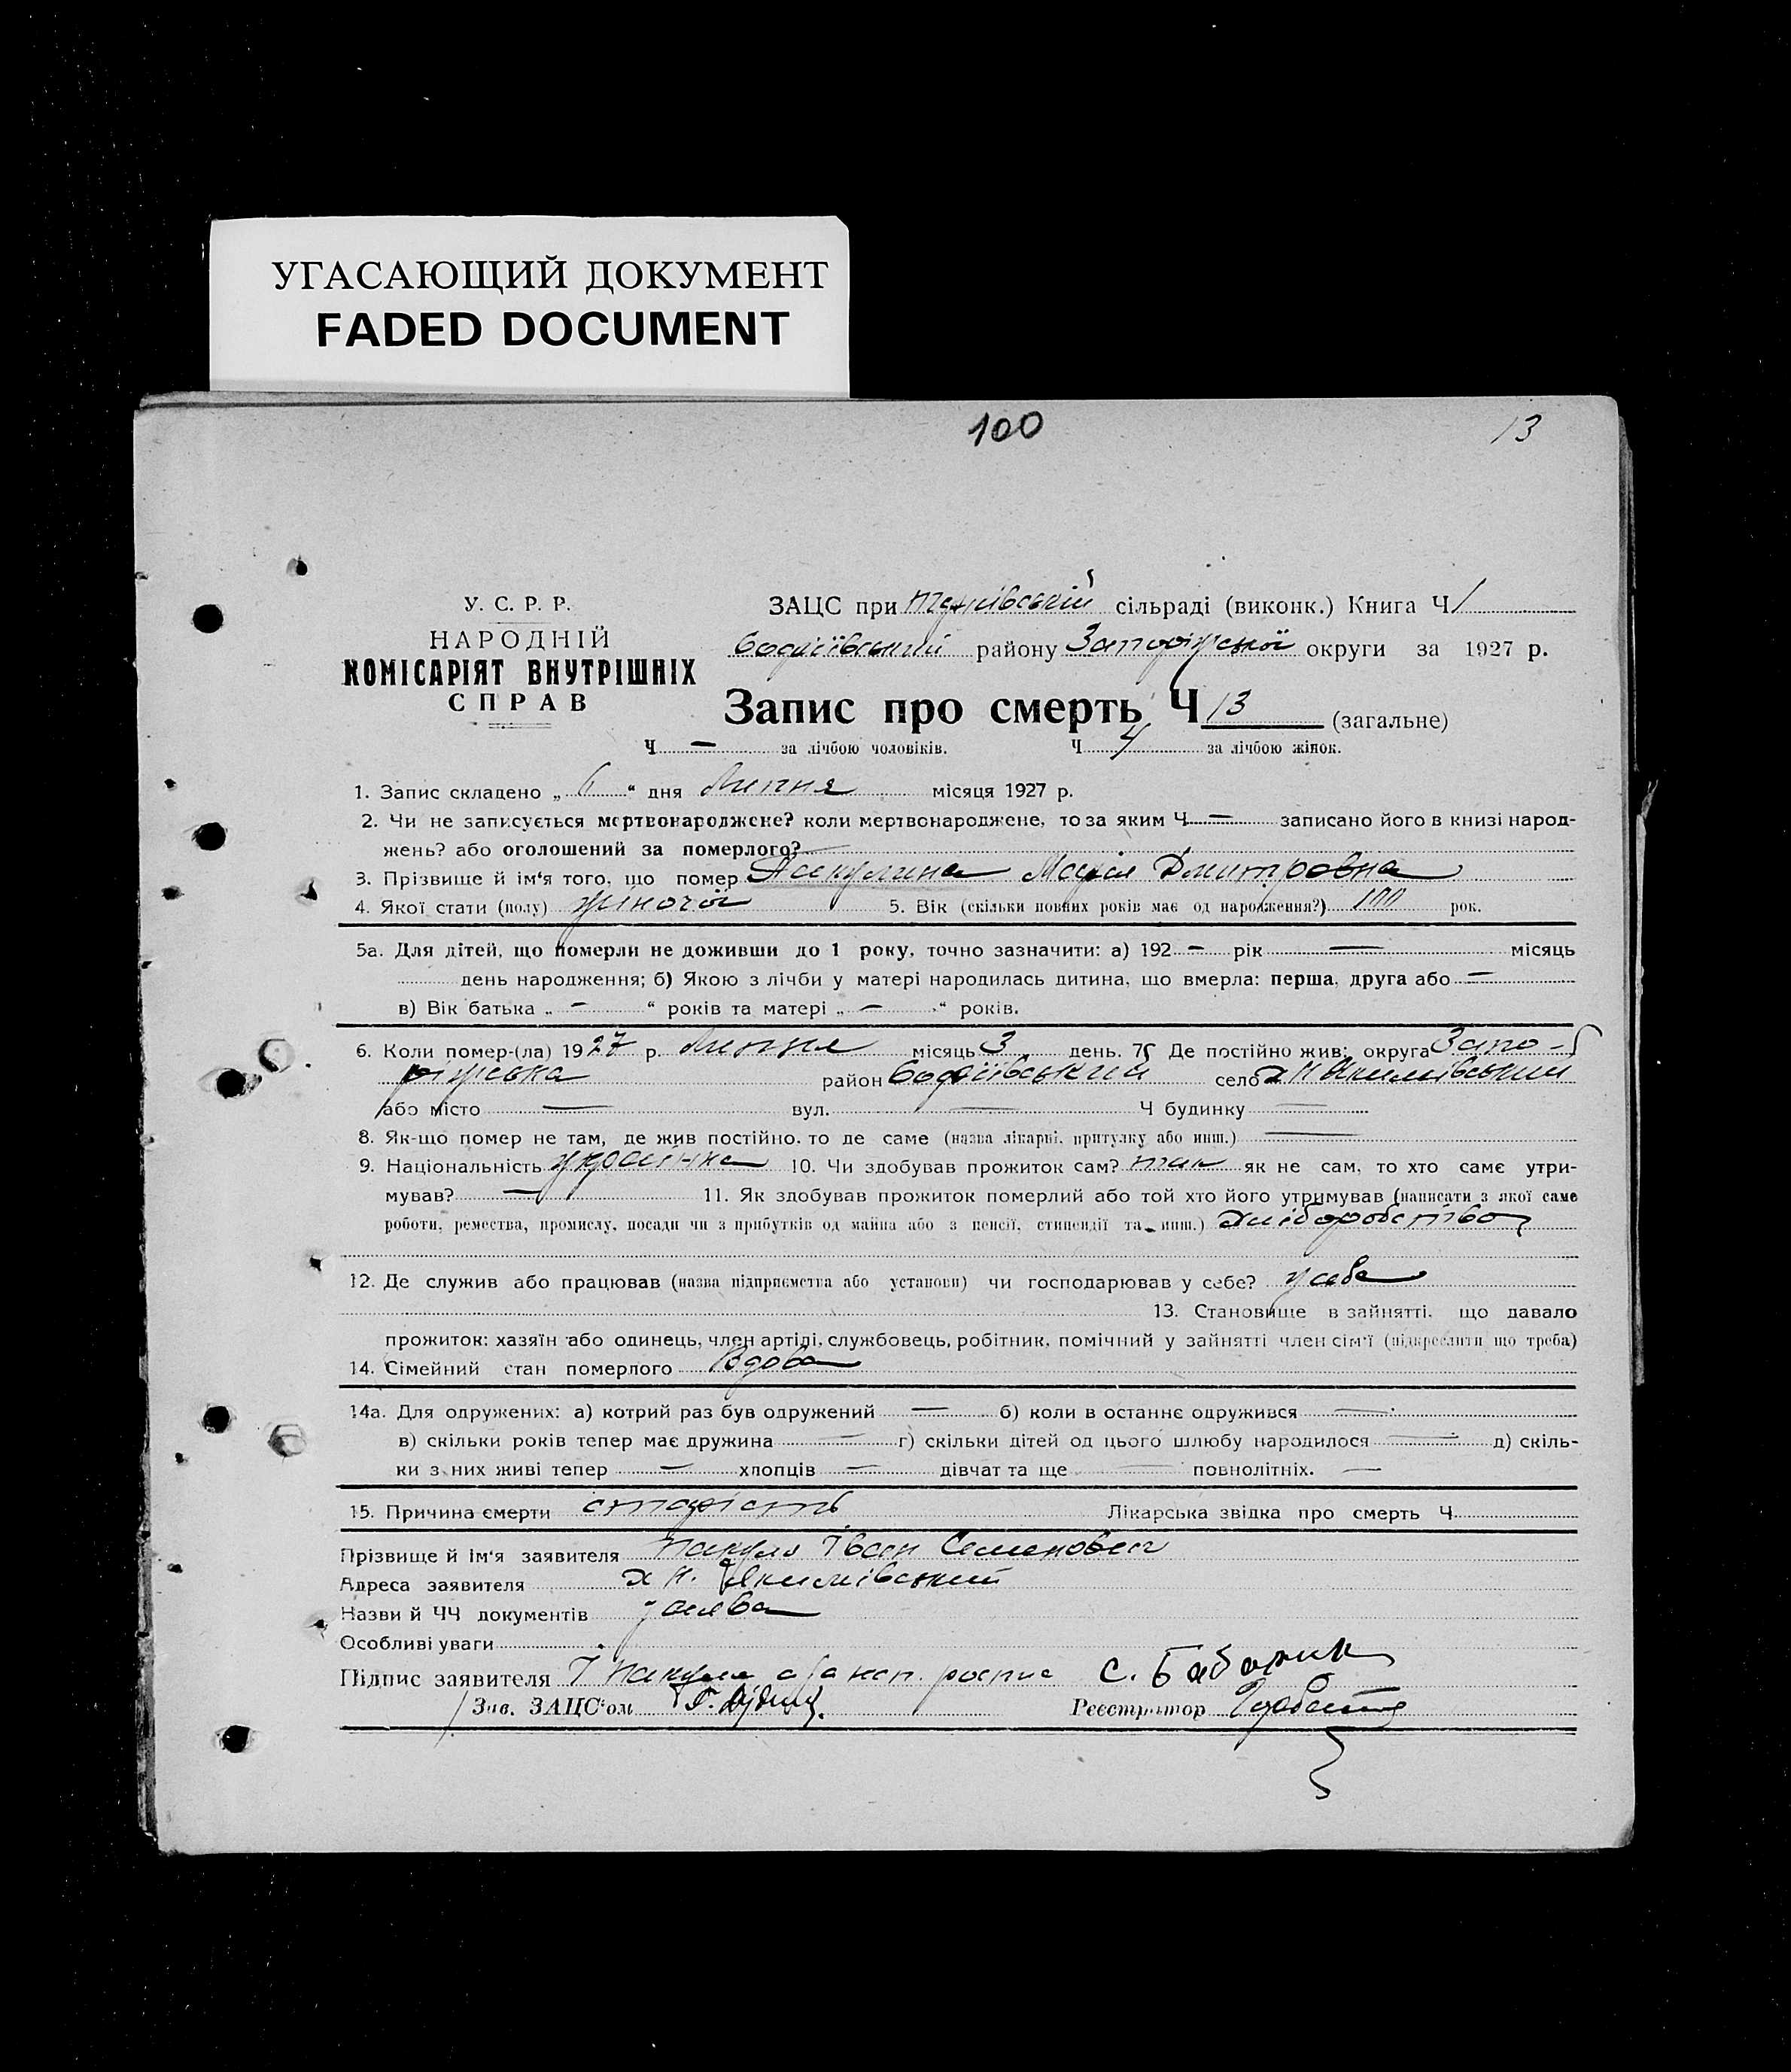 УГАСАЮЩИЙ ДОКУМЕНТ
FADED DOCUMENT
100
13
У. С. Р. Р.
НАРОДНІЙ
КОМІСАРІЯТ ВНУТРІШНІХ
СПРАВ
ЗАЦС при сільраді (виконк.) Книга Ч 1
району Запоріжської округи за 1927 р.
Запис про смерть Ч 13 (загальне)
Ч — за лічбою чоловіків. Ч 4 за лічбою жінок.
1. Запис складено „ 6 “ дня Липня місяця 1927 р.
2. Чи не записується мертвонароджене? коли мертвонароджене, то за яким Ч — записано його в книзі народ-
жень? або оголошений за померлого?
3. Прізвище й ім‘я того, що помер Марія Дмитровна
4. Якої стати (полу) жіночої 5. Вік (скільки повних років має од народження?) 100 рок.
5а. Для дітей, що померли не доживши до 1 року, точно зазначити: а) 192 — рік — місяць
день народження; б) Якою з лічби у матері народилась дитина, що вмерла: перша, друга або —
в) Вік батька „ — “ років та матері „ — “ років.
6. Коли помер-(ла) 1927 р. Липня місяць 3 день. 7. Де постійно жив: округа Запо-
ріжська район село х Н Якимівський
або місто — вул. — Ч будинку —
8. Як-що помер не там, де жив постійно, то де саме (назва лікарні, притулку або инш.) —
9. Національність українка 10. Чи здобував прожиток сам? так як не сам, то хто саме утри-
мував? — 11. Як здобував прожиток померлий або той хто його утримував (написати з якої саме
роботи, ремества, промислу, посади чи з прибутків од майна або з пенсії, стипендії та инш.) хліборобство
12. Де служив або працював (назва підприємства або установи) чи господарював у себе? у себе
13. Становище в зайнятті, що давало
прожиток: хазяїн або одинець, член артілі, службовець, робітник, помічний у зайнятті член сім‘ї (підкреслити що треба)
14. Сімейний стан померлого Вдова
14а. Для одружених: а) котрий раз був одружений — б) коли в останнє одружився —
в) скільки років тепер має дружина — г) скільки дітей од цього шлюбу народилося — д) скіль-
ки з них живі тепер — хлопців — дівчат та ще — повнолітніх. —
15. Причина смерти старість Лікарська звідка про смерть Ч
Прізвище й ім‘я заявителя Іван Семенович
Адреса заявителя х Н. Якимівський
Назви й ЧЧ документів заява
Особливі уваги
Підпис заявителя І роспис С.
Зав. ЗАЦС‘ом
Реєстратор